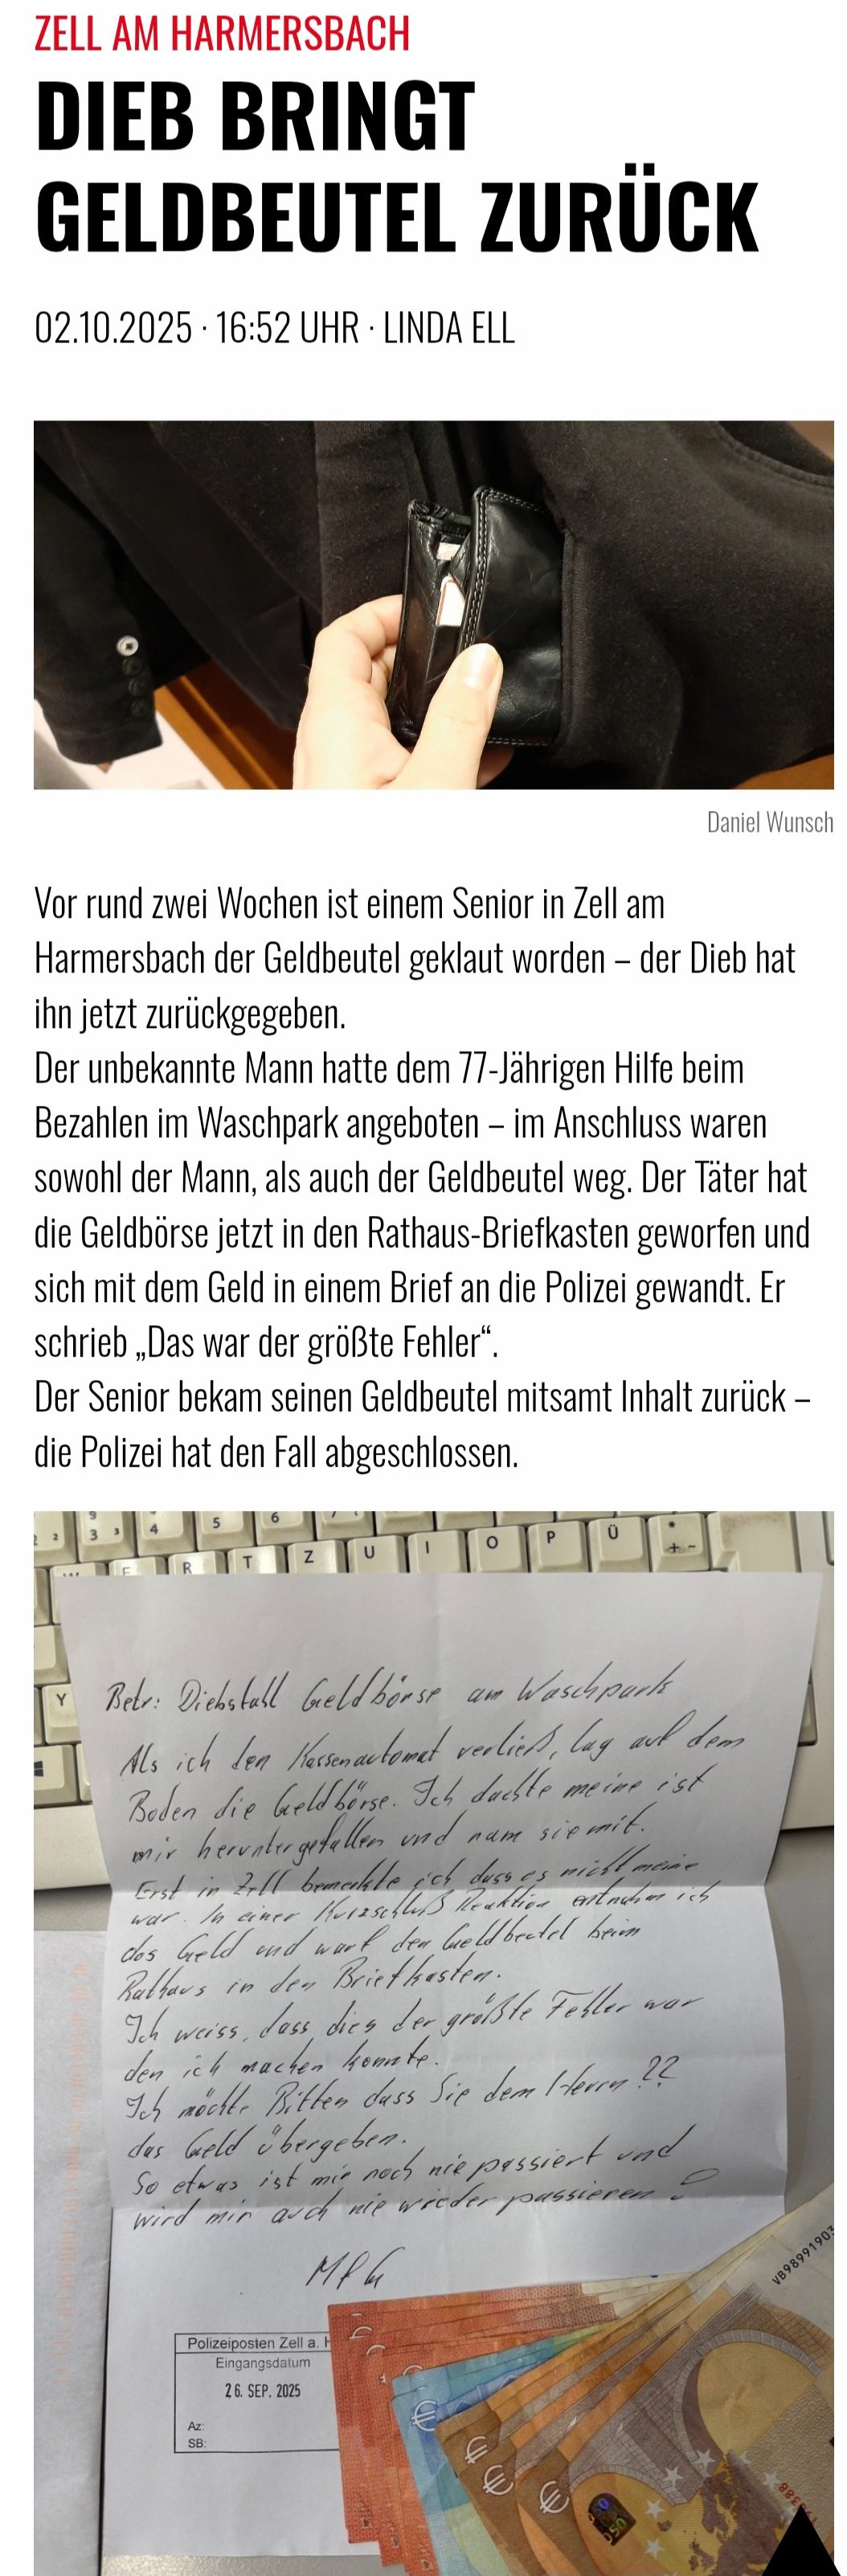 ZELL AM HARMERSBACH
DIEB BRINGT
GELDBEUTEL ZURÜCK
02.10.2025 · 16:52 UHR · LINDA ELL
Daniel Wunsch
Vor rund zwei Wochen ist einem Senior in Zell am
Harmersbach der Geldbeutel geklaut worden – der Dieb hat
ihn jetzt zurückgegeben.
Der unbekannte Mann hatte dem 77-Jährigen Hilfe beim
Bezahlen im Waschpark angeboten – im Anschluss waren
sowohl der Mann, als auch der Geldbeutel weg. Der Täter hat
die Geldbörse jetzt in den Rathaus-Briefkasten geworfen und
sich mit dem Geld in einem Brief an die Polizei gewandt. Er
schrieb „Das war der größte Fehler“.
Der Senior bekam seinen Geldbeutel mitsamt Inhalt zurück –
die Polizei hat den Fall abgeschlossen.
2 2 3 3 4 5 6 7
E R T Z U I O P Ü * + ~
Y
Betr: Diebstahl Geldbörse am Waschpark
Als ich den Kassenautomat verließ, lag auf dem
Boden die Geldbörse. Ich dachte meine ist
mir heruntergefallen und nam sie mit.
Erst in Zell bemerkte ich dass es nicht meine
war. In einer Kurzschluß Reaktion entnahm ich
das Geld und warf den Geldbeutel beim
Rathaus in den Briefkasten.
Ich weiss, dass dies der größte Fehler war
den ich machen konnte.
Ich möchte Bitten dass Sie dem Herrn ??
das Geld übergeben.
So etwas ist mir noch nie passiert und
wird mir auch nie wieder passieren !
MfG
Polizeiposten Zell a. H
Eingangsdatum
26. SEP. 2025
Az:
SB:
VB9899190
€
€
€
€
50